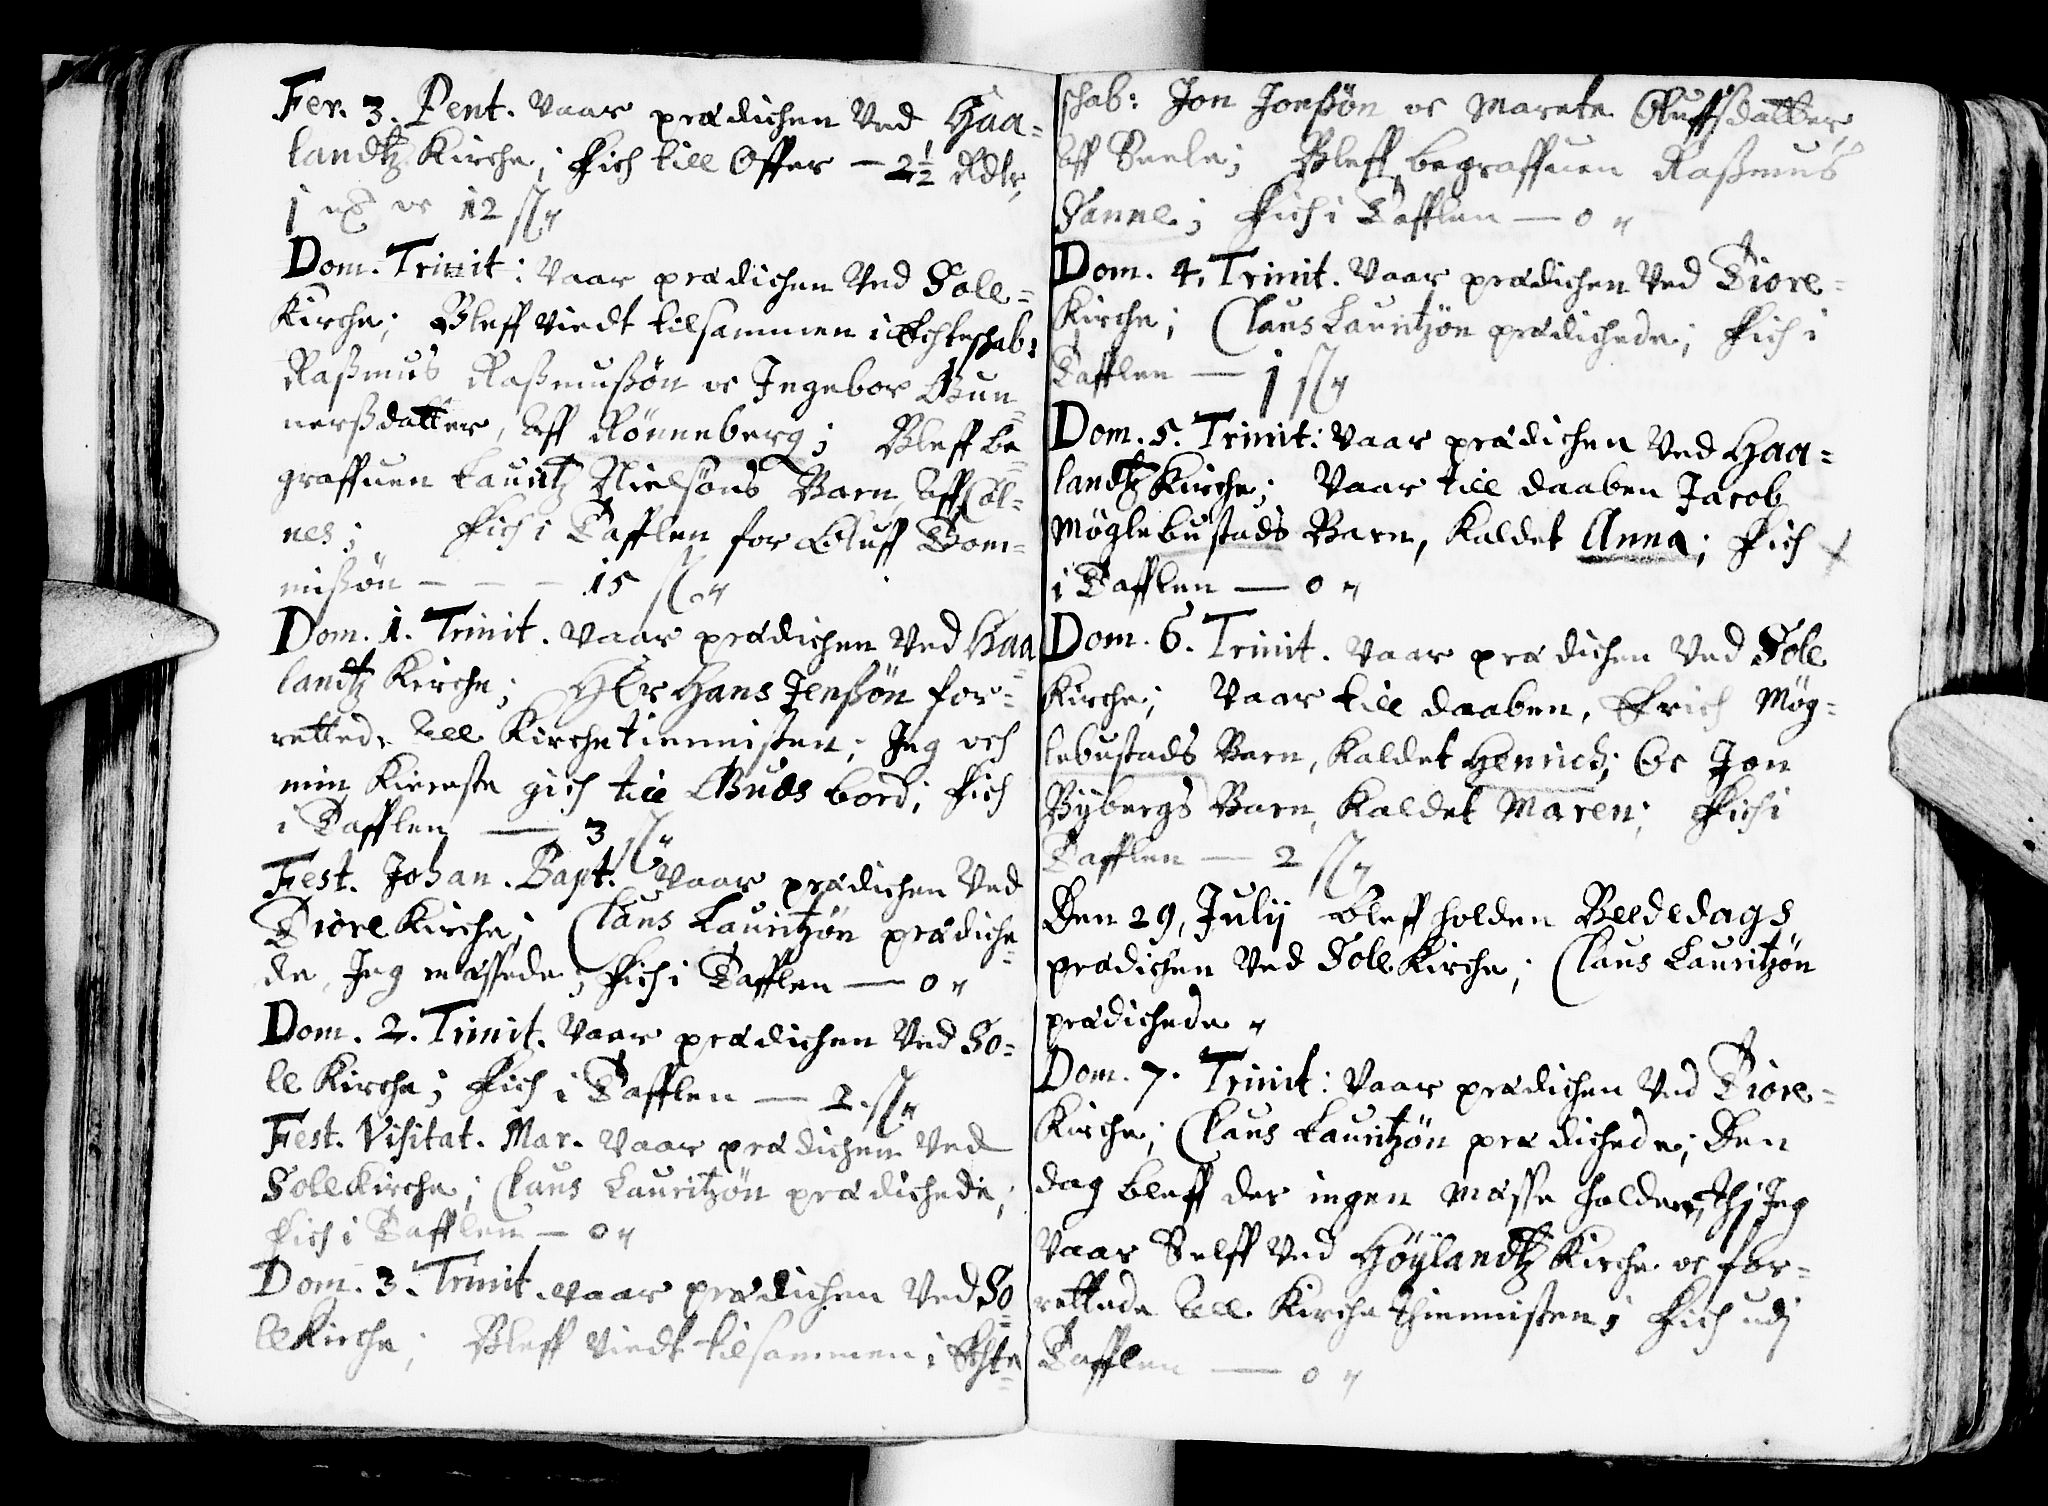 Fer. 3. Pent. Vaar prædichen Ved Haa=
landtz Kirche; Fich till Offer — 2½ Rdlr,
1 ... oc 12 ß
Dom. Trinit: Vaar prædichen Ved Sole=
Kirche; Bleff Viedt tilsammen i Echteskab:
Rasmus Rasmußøn oc Ingebor Gun=
nerßdatter, Aff Rönneberg; Bleff be=
graffuen Lauritz Nielsøns Barn, Aff Søl=
nes; Fich i Tafflen for Oluff Tom=
mißøn — — — 15 ß
Dom. 1. Trinit. Vaar prædichen Ved Haa=
landtz Kirche; HEr Hans Jenßøn for=
rettede All Kirchetiennisten; Jeg och
min Kiereste gich till Guds bord; Fich
i Tafflen — 3 ß
Fest. Johan. Bapt. Vaar prædichen Ved
Tiore Kirche; Claus Lauritzøn prædiche=
de, Jeg messede; Fich i Tafflen — 0
Dom. 2. Trinit. Vaar prædichen Ved So=
le Kirche; Fich i Tafflen — 2 ß
Fest. Visitat. Mar. Vaar prædichen Ved
Sole Kirche; Claus Lauritzøn prædichede;
Fich i Tafflen — 0
Dom. 3. Trinit. Vaar prædichen Ved So=
le Kirche; Bleff Viedt tilsammen i Echte=
schab: Jon Jonßøn oc Marete Oluffsdatter,
Aff Seele; Bleff begraffuen Raßmus
Sanne; Fich i Tafflen — 0
Dom. 4. Trinit. Vaar prædichen Ved Tiore=
Kirche; Claus Lauritzøn prædichede; Fich i
Tafflen — 1 ß
Dom. 5. Trinit: Vaar prædichen Ved Haa=
landtz Kirche; Vaar till daaben Jacob
Møglebustads Barn, Kaldet Anna; Fich
i Tafflen — 0
Dom. 6. Trinit. Vaar prædichen Ved Sole
Kirche; Vaar till daaben, Erich Møg=
lebustads Barn, Kaldet Henrich; Oc Jon
Bybergs Barn, Kaldet Maren; Fich i
Tafflen — 2 ß
Den 29, Julij bleff holden Bededags
prædichen Ved Sole Kirche; Claus Lauritzøn
prædichede
Dom. 7. Trinit: Vaar prædichen Ved Tiore=
Kirche; Claus Lauritzøn prædichede; Den
dag bleff der ingen Messe holden, Thj Jeg
Vaar Selff Ved Høylandtz Kirche oc for=
rettede All Kirche thiennisten; Fich udj
Tafflen — 0